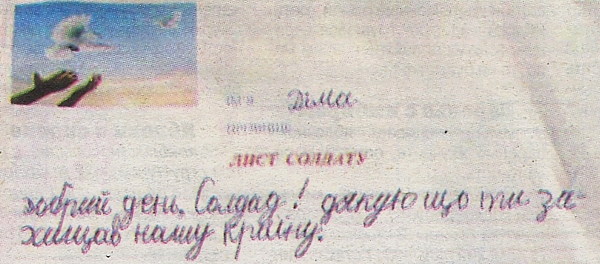 ІМ'Я Діма
ПРІЗВИЩЕ
ЛИСТ СОЛДАТУ
добрий день. Солдад! дякую що ти за-
хищав нашу країну.